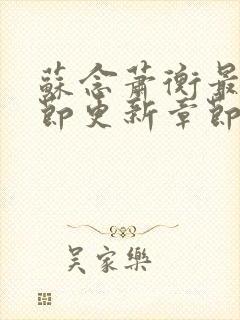 蘇念蕭衡最
節更新章節
吳家樂